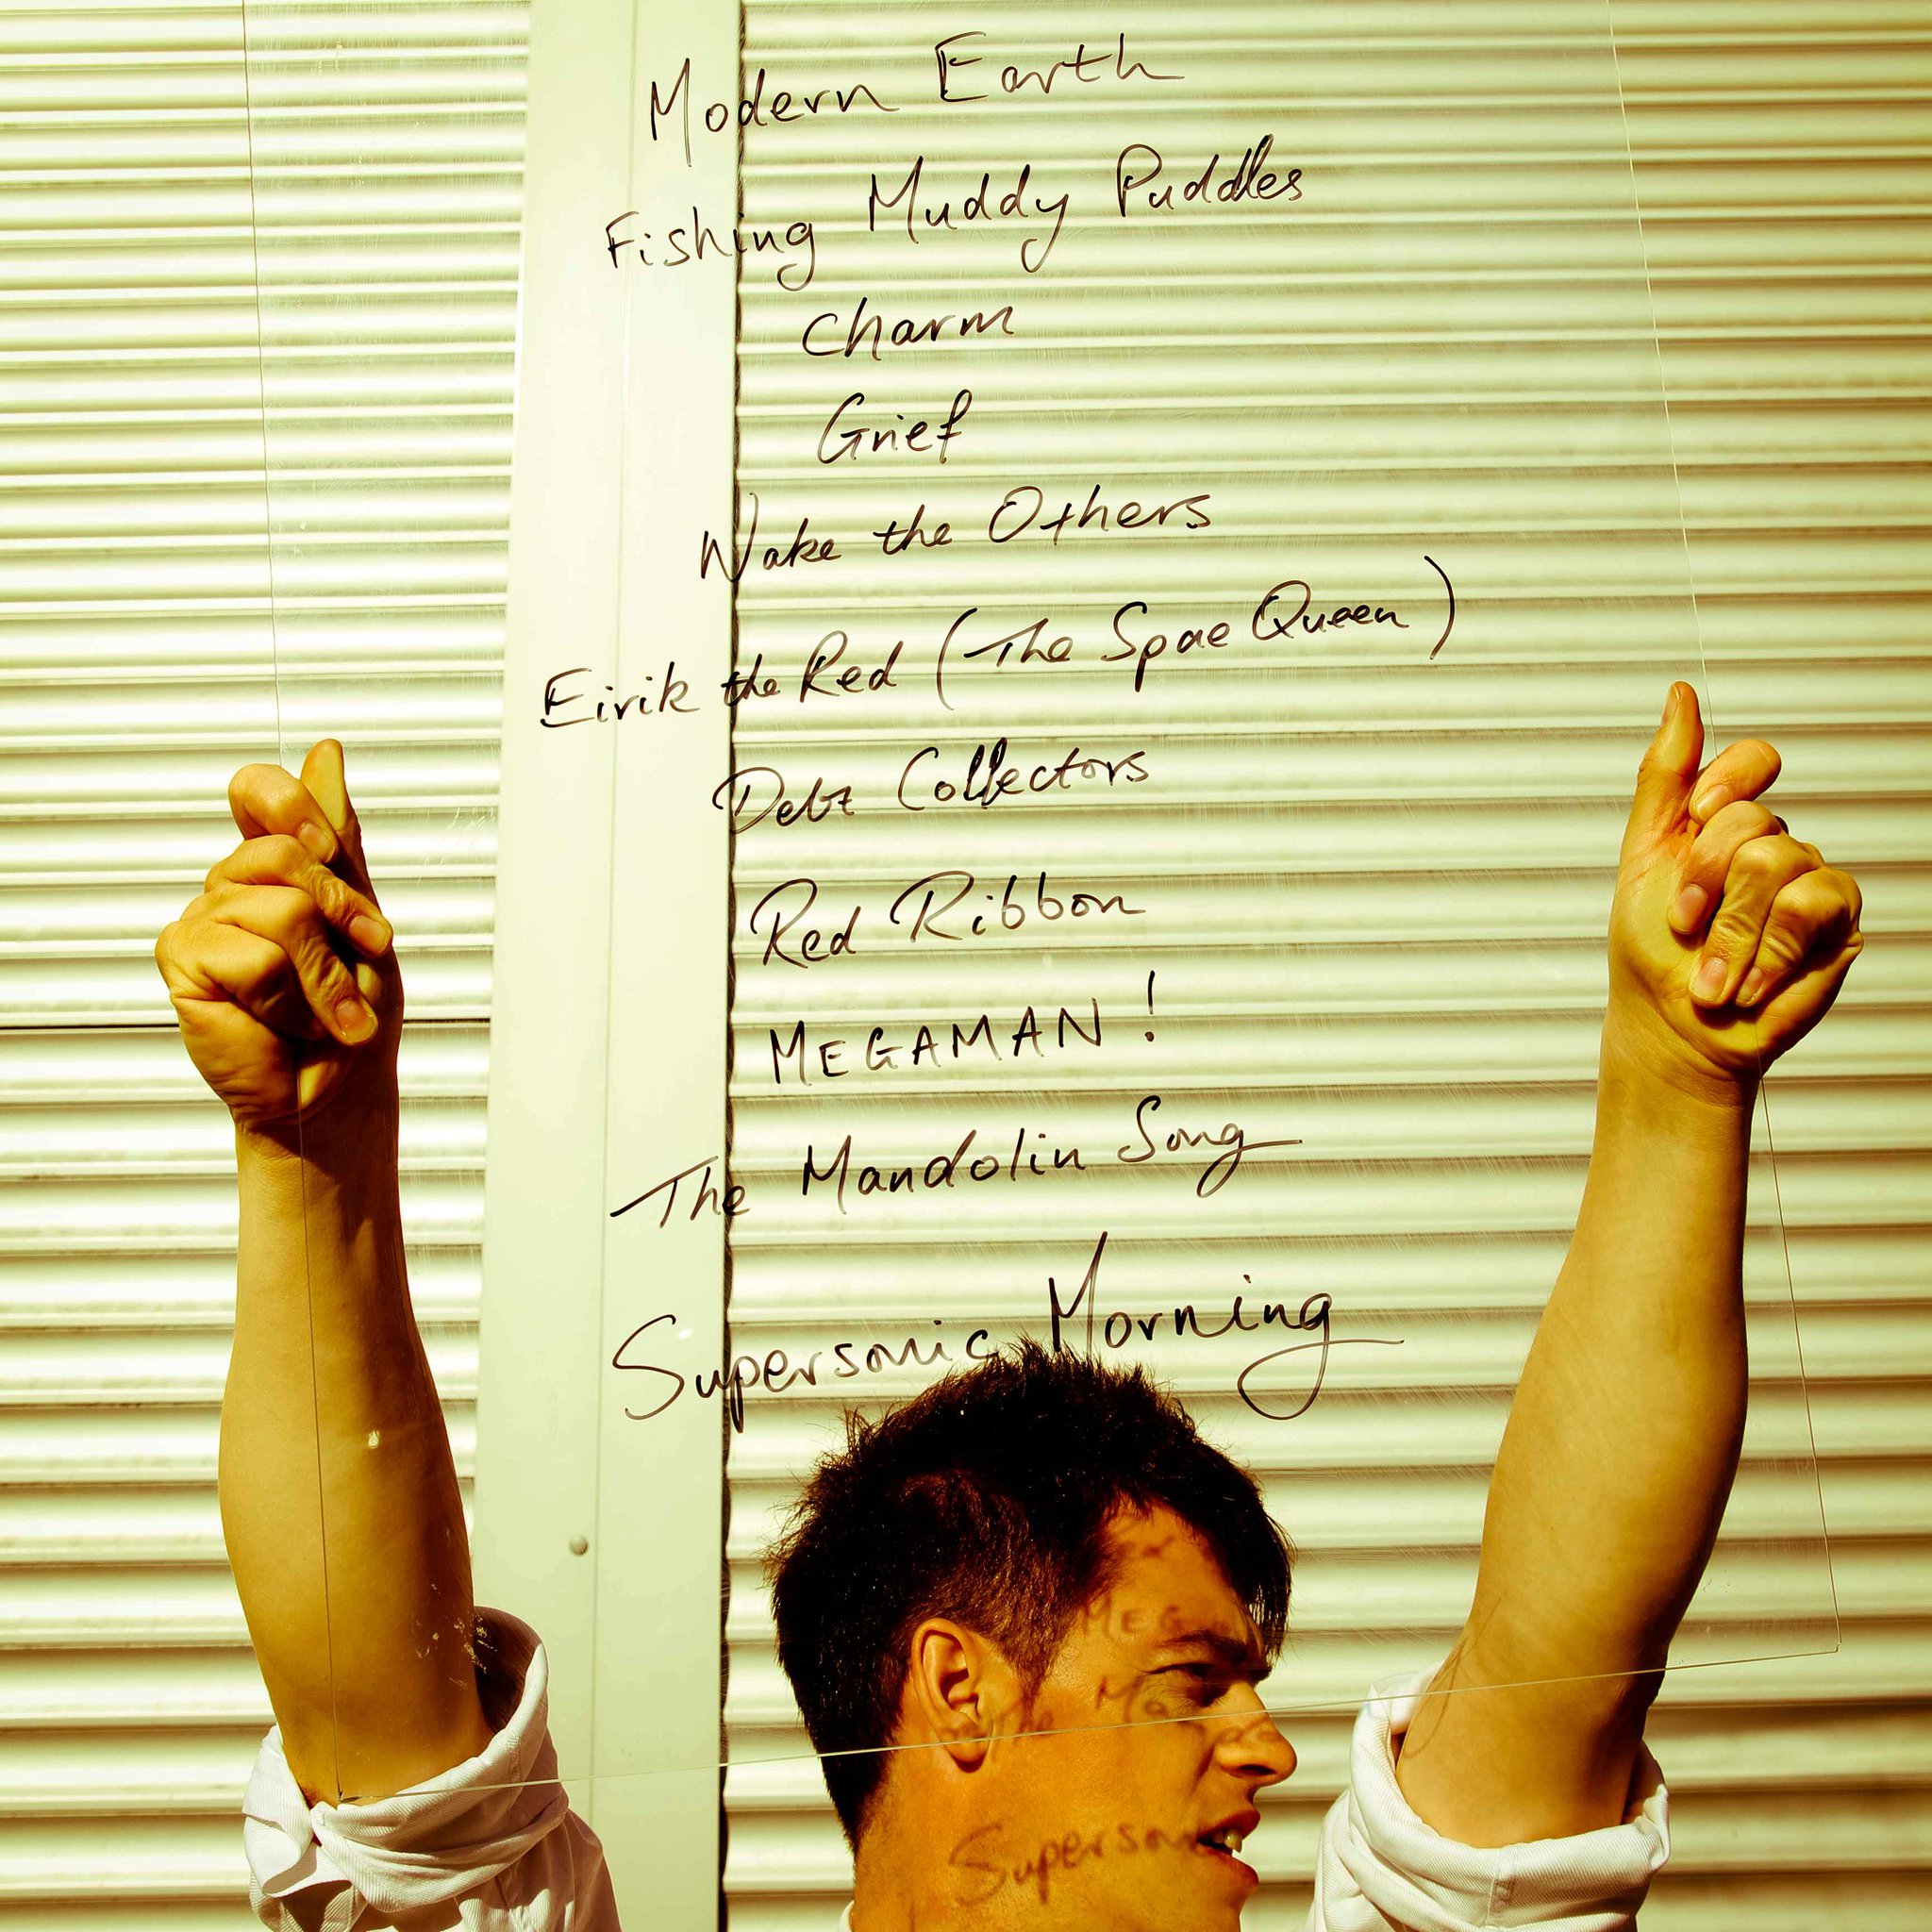 Modern Earth
Fishing Muddy Puddles
Charm
Grief
Wake the Others
Eirik the Red (The Spae Queen)
Debt Collectors
Red Ribbon
MEGAMAN!
The Mandolin Song
Supersonic Morning